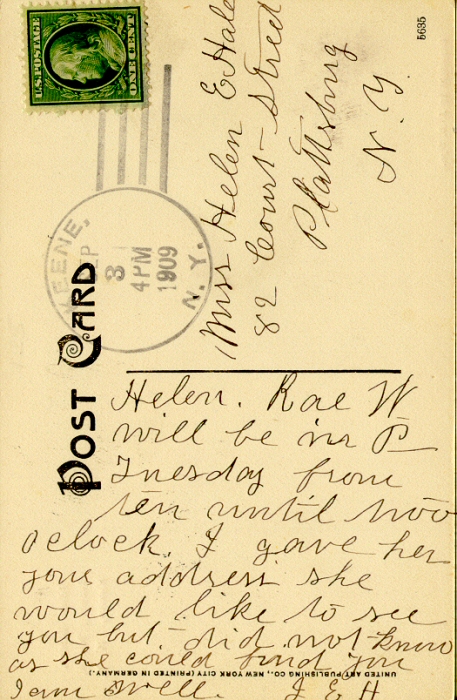 U.S. POSTAGE
ONE CENT
5635
KEENE,
SEP
3
4 PM
1909
N.Y.
POST CARD
Miss Helen E Hale
82 Court Street
Plattsburg
N.Y.
Helen. Rae W
will be in P
Tuesday from
ten until two
oclock. I gave her
your address she
would like to see
you but did not know
as she could find you
I am well. J. E. H.
UNITED ART PUBLISHING CO., NEW YORK CITY (PRINTED IN GERMANY.)